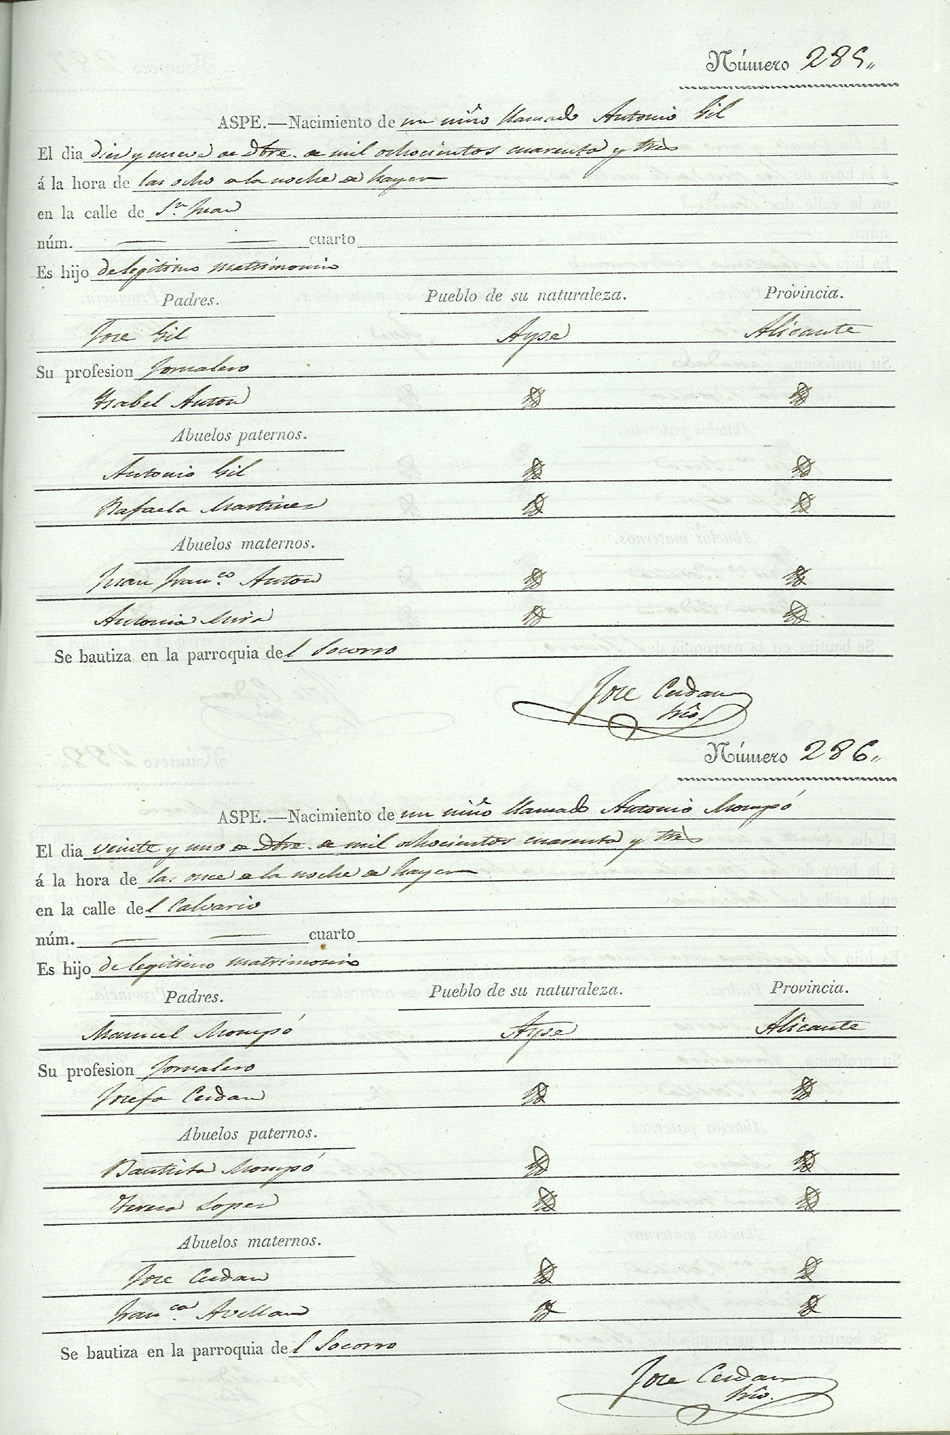 Número 285,,
ASPE.—Nacimiento de un niño llamado Antonio Gil
El dia diez y nueve de Dbre. de mil ochocientos cuarenta y tres
á la hora de las ocho de la noche de hayer
en la calle de Sn. Juan
núm. — — cuarto
Es hijo de legitimo matrimonio
Padres. Pueblo de su naturaleza. Provincia.
Jose Gil Aspe Alicante
Su profesion Jornalero
Ysabel Anton
Abuelos paternos.
Antonio Gil
Rafaela Martinez
Abuelos maternos.
Juan Franco. Anton
Antonia Mira
Se bautiza en la parroquia del Socorro
Jose Cerdan
Srio.
Número 286,,
ASPE.—Nacimiento de un niño llamado Antonio Mompó
El dia veinte y uno de Dbre. de mil ochocientos cuarenta y tres
á la hora de las once de la noche de hayer
en la calle del Calvario
núm. — — cuarto
Es hijo de legitimo matrimonio
Padres. Pueblo de su naturaleza. Provincia.
Manuel Mompó Aspe Alicante
Su profesion Jornalero
Josefa Cerdan
Abuelos paternos.
Bautista Mompó
Teresa Lopez
Abuelos maternos.
Jose Cerdan
Franca. Avellan
Se bautiza en la parroquia del Socorro
Jose Cerdan
Srio.